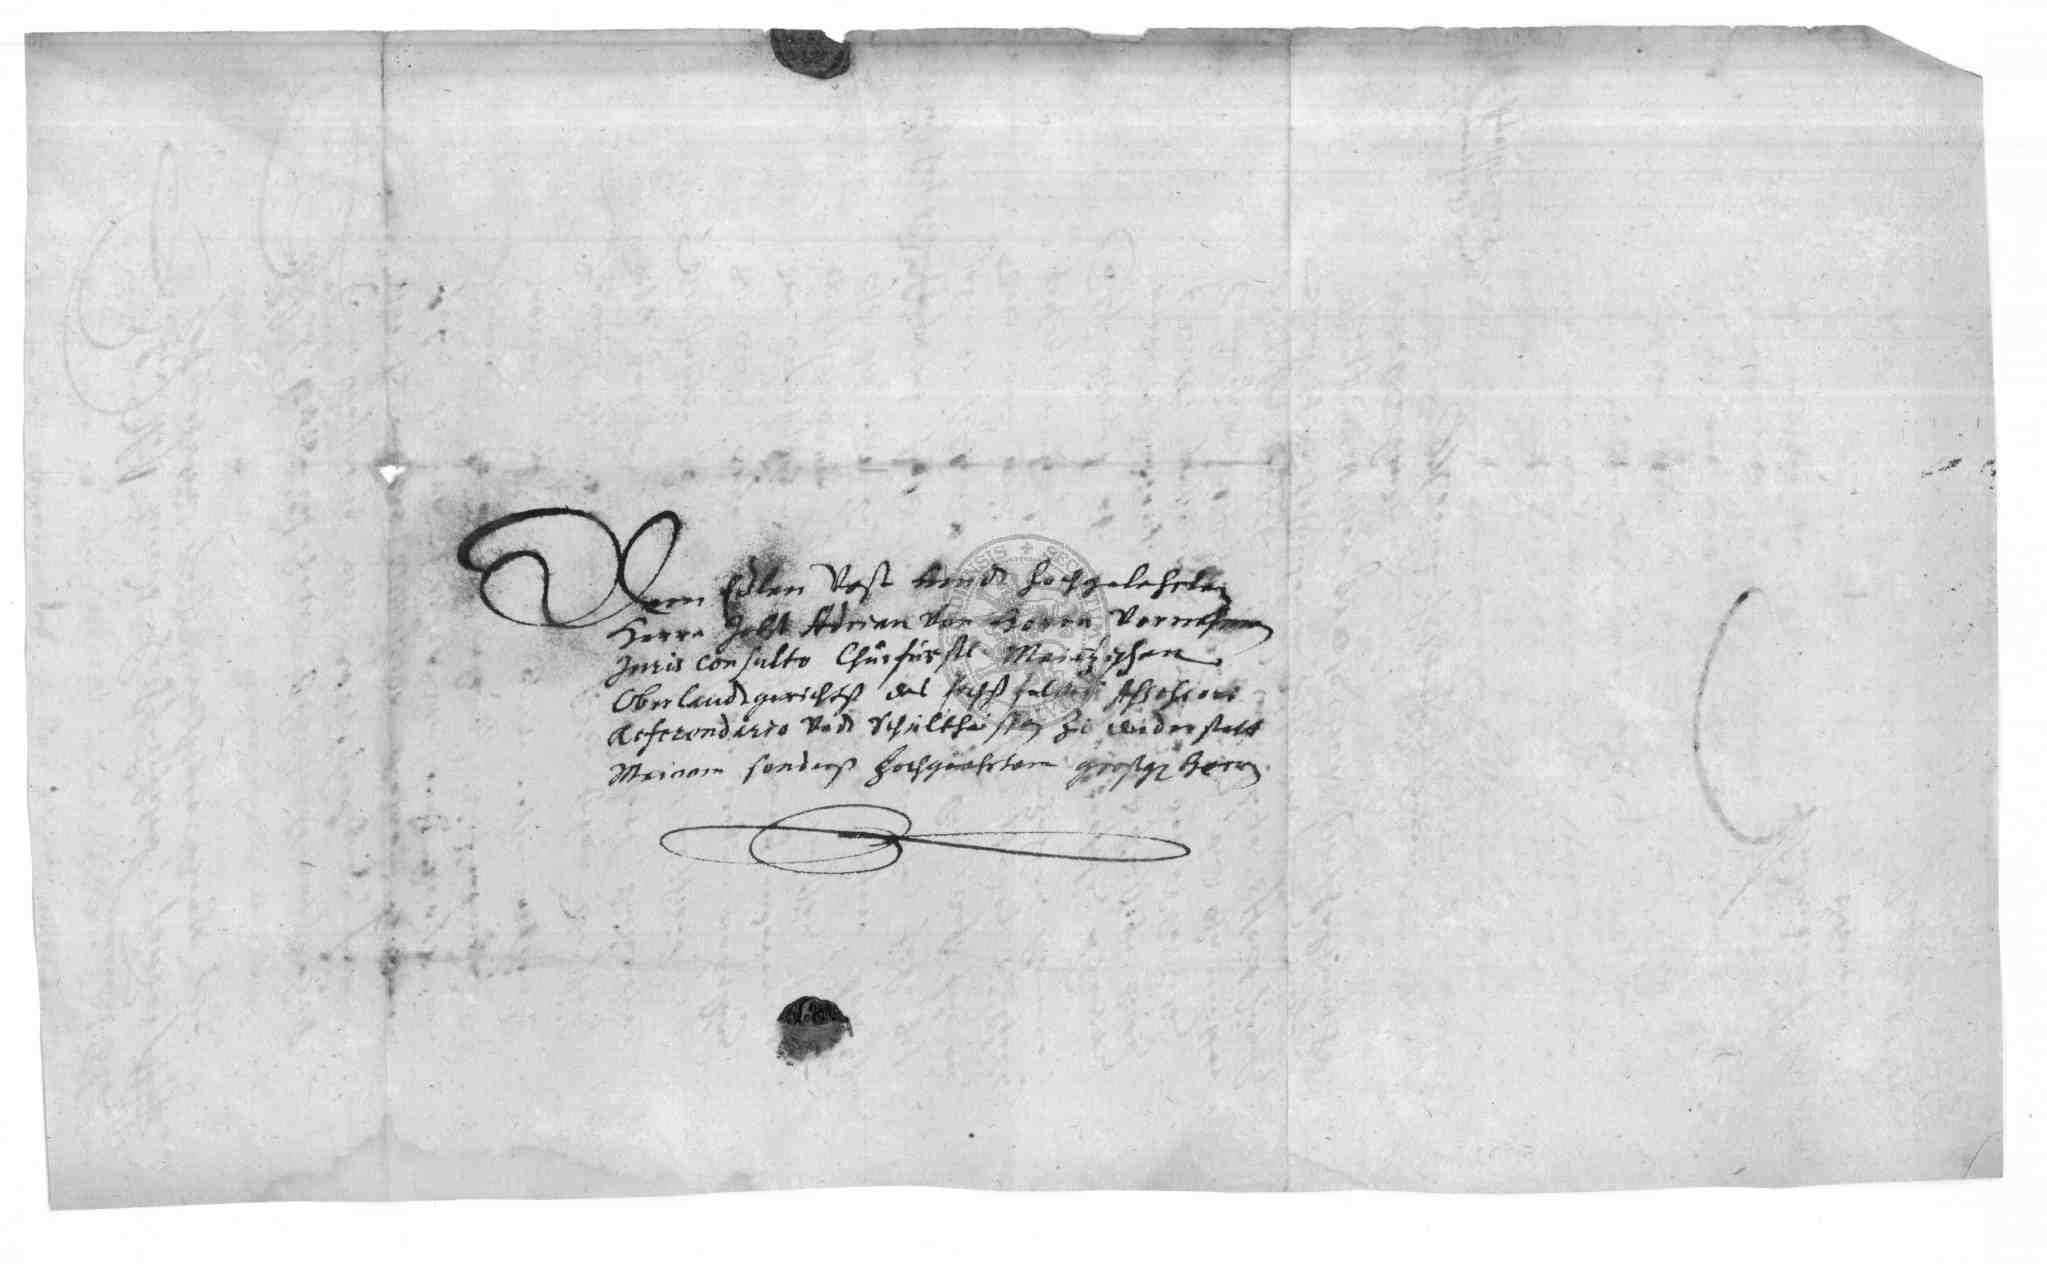 Dem Edlen Vest Vnndt hochgelehrten
Herrn Jobst Adrian von Horen Vornehmen
Juris Consulto Churfürstl: Maintzischen
Oberlandtgerichtß des Eychßfeldeß Assessori
Referendario Vndt Schultheißen zu Duderstatt
Meinem sonderß hochgeehrtem großg. Herrn